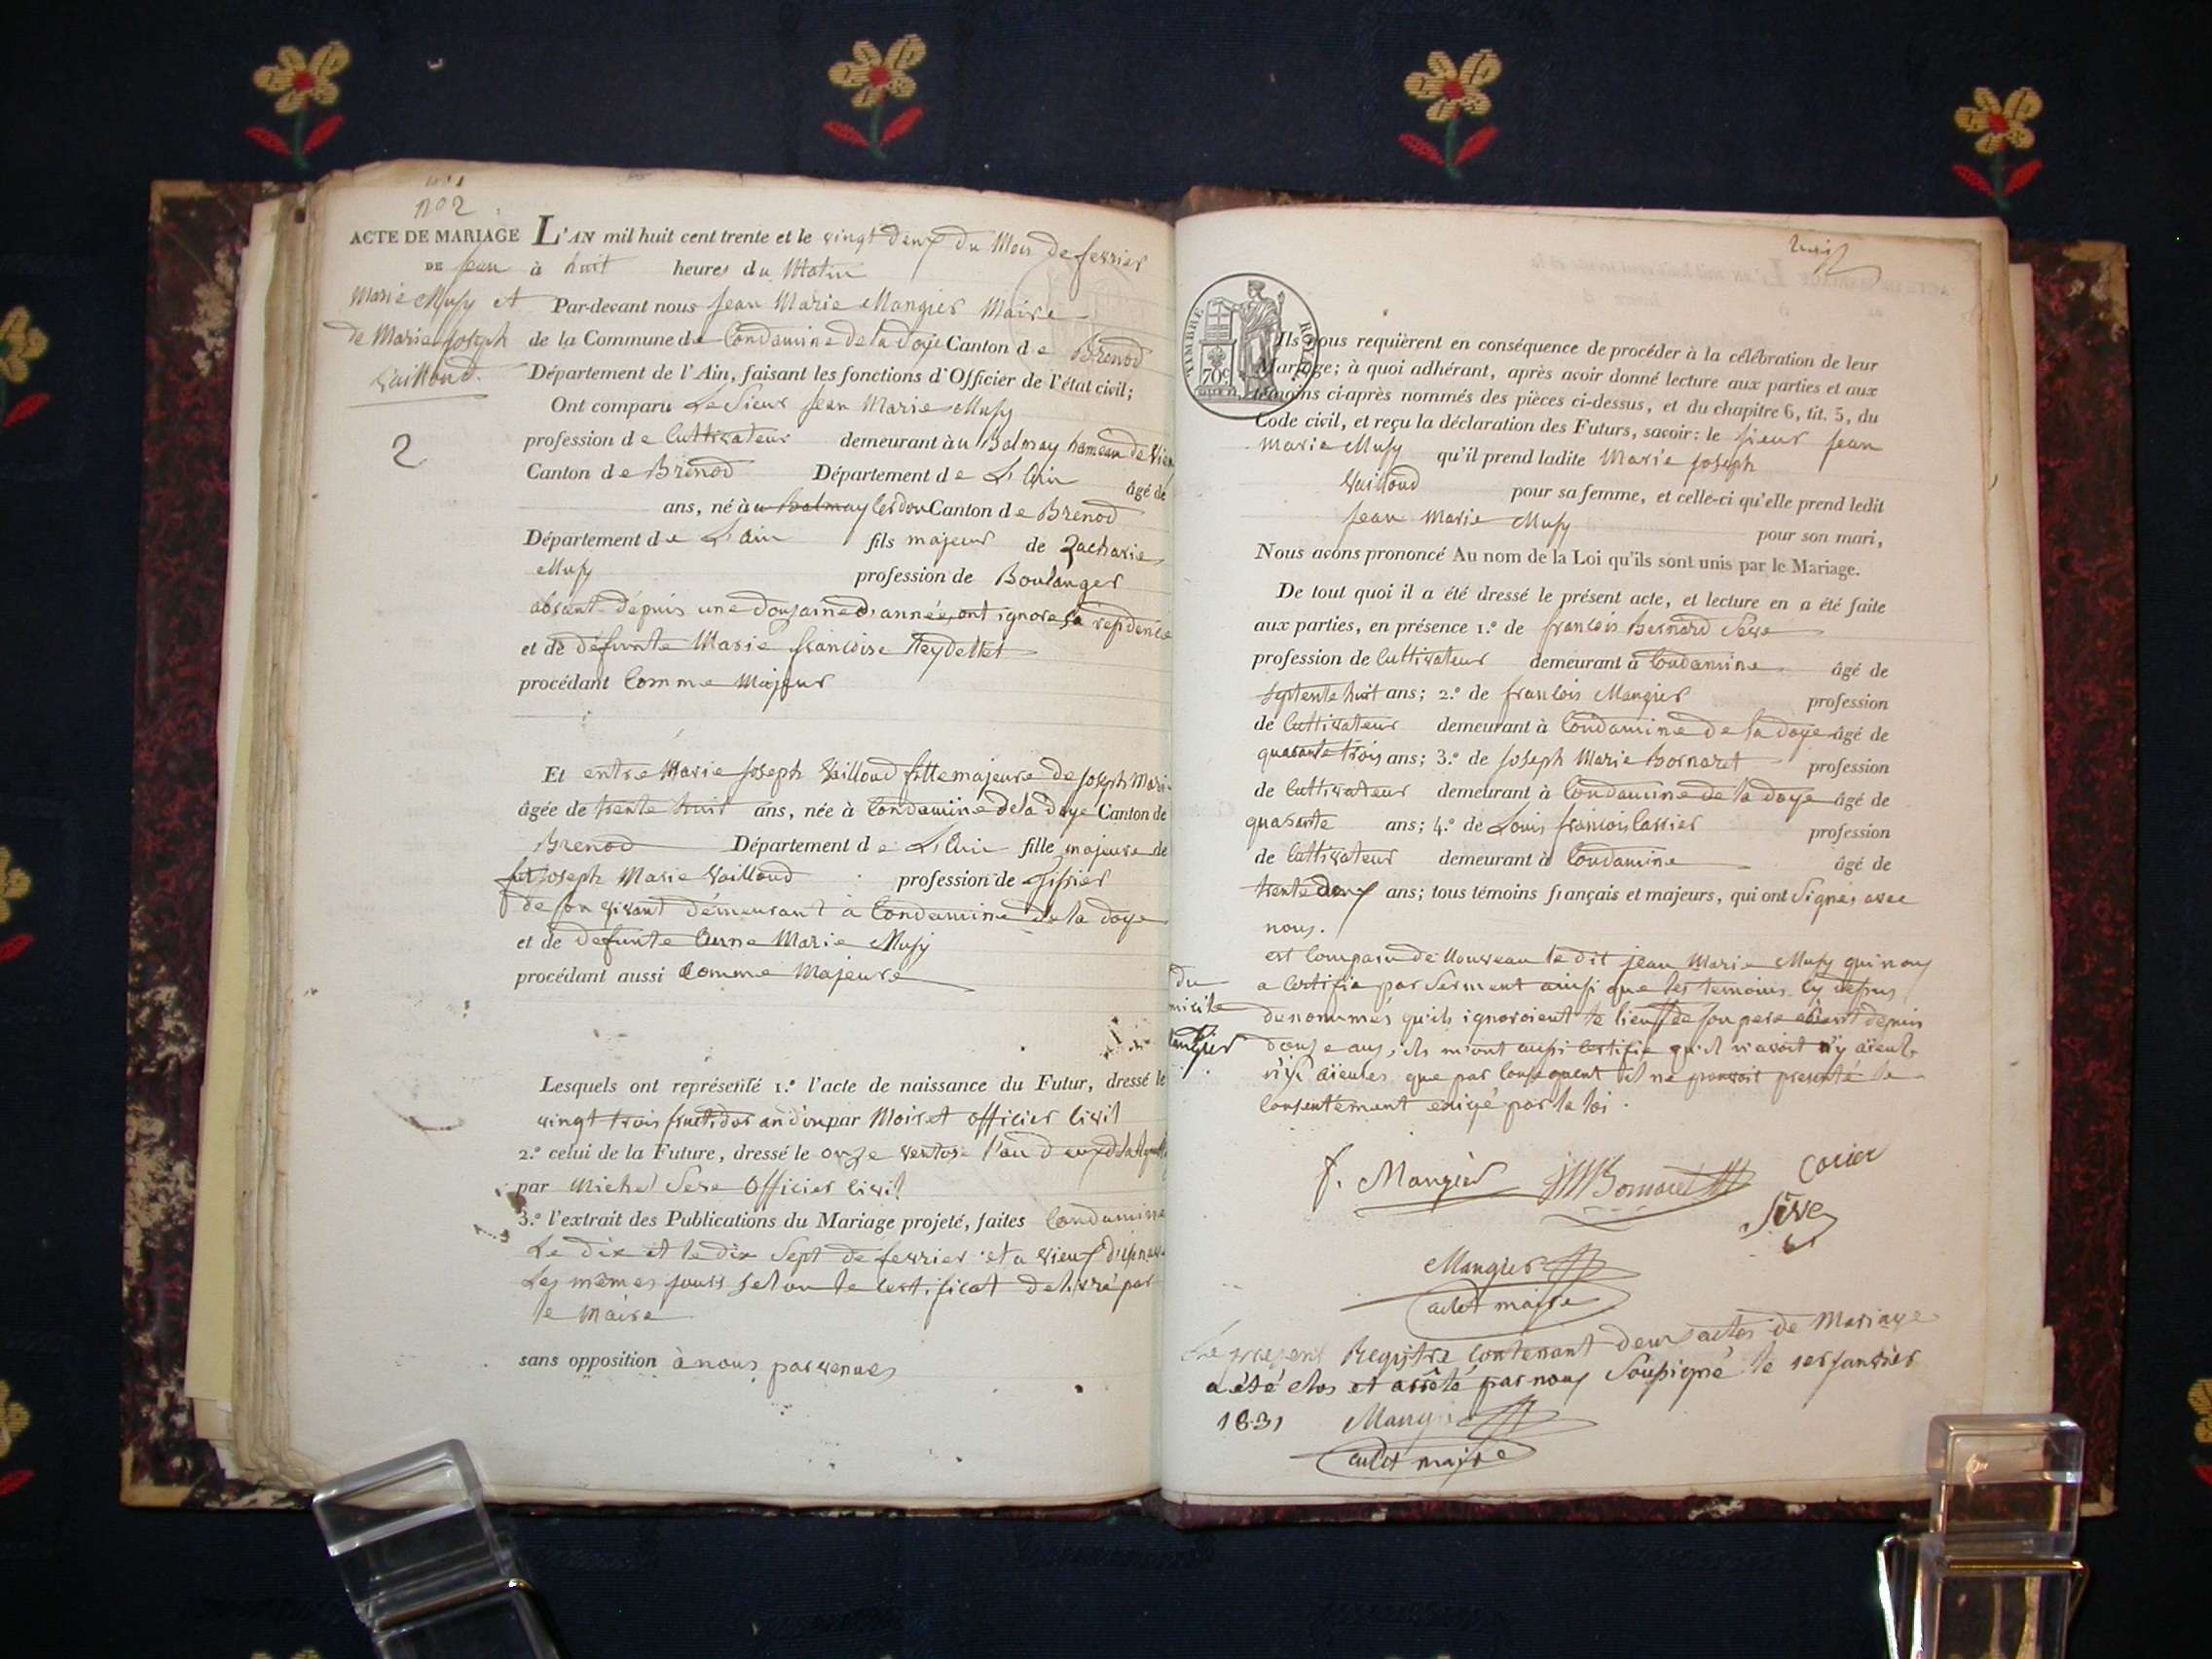 n° 2
ACTE DE MARIAGE
DE Jean
Marie Musy et
de Marie Joseph
Vailloud.
2
L'AN mil huit cent trente et le vingt deux du Mois de fevrier
à huit heures du Matin
Par-devant nous Jean Marie Mangier Maire
de la Commune de Condamine de la doye Canton de Brenod
Département de l'Ain, faisant les fonctions d'Officier de l'état civil;
Ont comparu Le Sieur Jean Marie Musy
profession de Cultivateur demeurant à u Balmay hameau de Vieu
Canton de Brenod Département de L'Ain âgé de
ans, né à u Balmay Cerdon Canton de Brenod
Département de L'ain fils majeur de Zacharie
Musy profession de Boulanger
absant depuis une Dousaine d'année, ont ignore sa residence
et de défunte Marie françoise Reydellet
procédant Comme Majeur
Et entre Marie Joseph Vailloud fille majeure de Joseph Marie
âgée de trente huit ans, née à Condamine de la Doye Canton de
Brenod Département de L'Ain fille majeure de
fut Joseph Marie Vailloud profession de
de son vivant demeurant à Condamine de la doye
et de defunte Anne Marie Musy
procédant aussi Comme Majeure
Lesquels ont représenté 1.º l'acte de naissance du Futur, dressé le
vingt trois fructidor an dix par Moiret officier Civil
2.º celui de la Future, dressé le onze ventose l'an
par Michel Seve Officier Civil
3.º l'extrait des Publications du Mariage projeté, faites Condamine
Le dix et le dix Sept de fevrier et a vieux
Les mêmes jours selon le certificat delivré par
le Maire
sans opposition à nous parvenues
TIMBRE ROYAL
70c
Ils nous requièrent en conséquence de procéder à la célébration de leur
Mariage; à quoi adhérant, après avoir donné lecture aux parties et aux
témoins ci-après nommés des pièces ci-dessus, et du chapitre 6, tit. 5, du
Code civil, et reçu la déclaration des Futurs, savoir: le sieur Jean
Marie Musy qu'il prend ladite Marie Joseph
Vailloud pour sa femme, et celle-ci qu'elle prend ledit
Jean Marie Musy pour son mari,
Nous avons prononcé Au nom de la Loi qu'ils sont unis par le Mariage.
De tout quoi il a été dressé le présent acte, et lecture en a été faite
aux parties, en présence 1.º de francois Bernard Seve
profession de Cultivateur demeurant à Condamine âgé de
septente huit ans; 2.º de francois Mangier profession
de Cultivateur demeurant à Condamine de la doye âgé de
quarante trois ans; 3.º de Joseph Marie Bornaret profession
de Cultivateur demeurant à Condamine de la doye âgé de
quarante ans; 4.º de Louis francois Carrier profession
de Cultivateur demeurant à Condamine âgé de
trente deux ans; tous témoins français et majeurs, qui ont Signés avec
nous.
est Comparu de Nouveau le dit jean Marie Musy qui nous
a Certifie par Serment ainsi que les temoins Cy dessus
denommés qu'ils ignoroient le lieux de son pere absent depuis
douze ans, ils m'ont aussi certifie qu'il n'avoit n'y aïeul
n'y aïeules que par consequent il ne pouvoit presenté le
Consentement exigé par la loi.
du
micile
Mangier
f. Mangier JM Bornaret Carier
Sève
Mangier
adct maire
Le present Registre contenant deux actes de Mariage
a été clos et arrêté par nous Soussigné le 1er janvier
1831 Mangier
adct maire